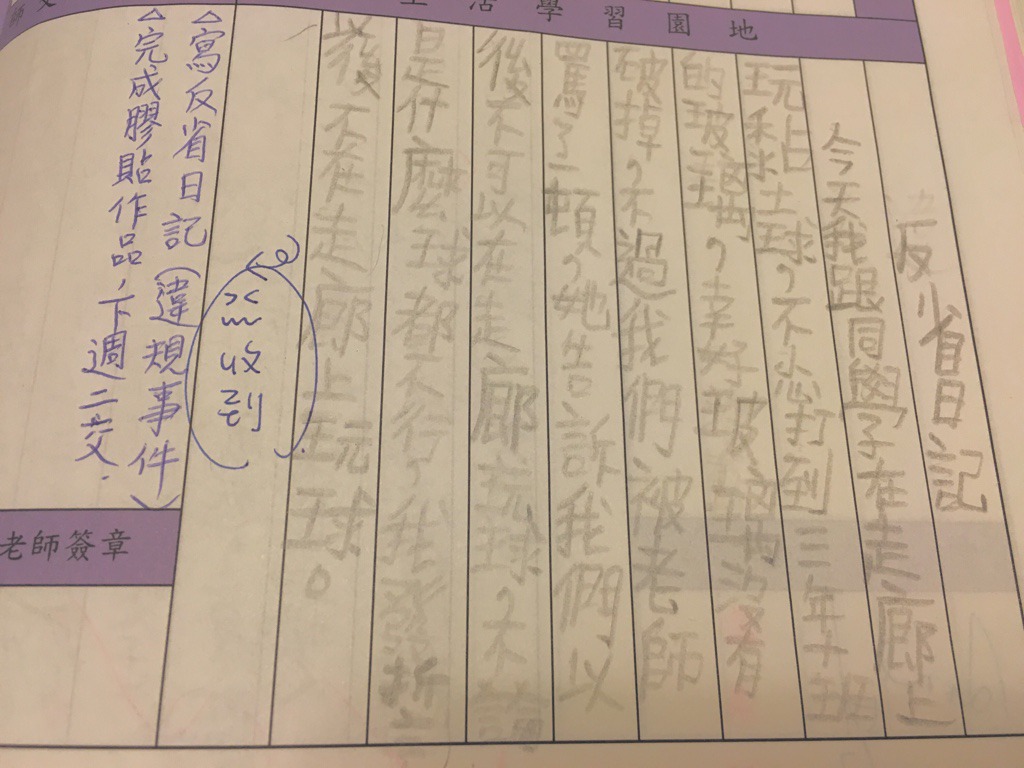 生活學習園地
反省日記
今天我跟同學在走廊上
玩黏土球，不小心打到三年十班
的玻璃，幸好玻璃沒有
破掉，不過我們被老師
罵了一頓，她告訴我們以
後不可以在走廊玩球，不論
是什麼球都不行，我發誓
以後不在走廊上玩球。
收到
△寫反省日記(違規事件)
△完成膠貼作品，下週三交.
老師簽章